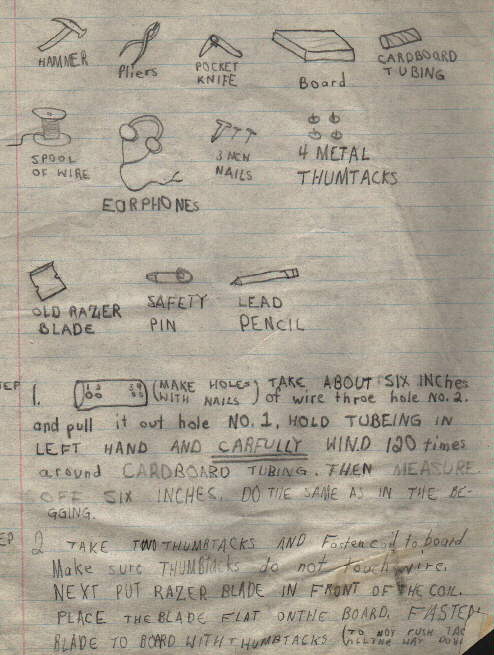 HAMMER Pliers POCKET KNIFE Board CARDBOARD TUBING
SPOOL OF WIRE EARPHONES 3 INCH NAILS 4 METAL THUMTACKS
OLD RAZER BLADE SAFETY PIN LEAD PENCIL
EP 1. (MAKE HOLES WITH NAILS) TAKE ABOUT SIX INCHes
of wire throe hole NO. 2.
and pull it out hole NO. 1, HOLD TUBEING IN
LEFT HAND AND CARFULLY WIND 120 times
around CARDBOARD TUBING. THEN MEASURE
OFF SIX INCHES. DO THE SAME AS IN THE BE-
GGING.
EP 2 TAKE TWO THUMBTACKS AND Fasten coil to board
Make sure THUMBTACKS do not touch wire.
NEXT PUT RAZER BLADE IN FRONT OF THE COIL.
PLACE THE BLADE FLAT ON THE BOARD. FASTEN
BLADE TO BOARD WITH THUMBTACKS (TO NOT PUSH TAC
ALL THE WAY DOWN